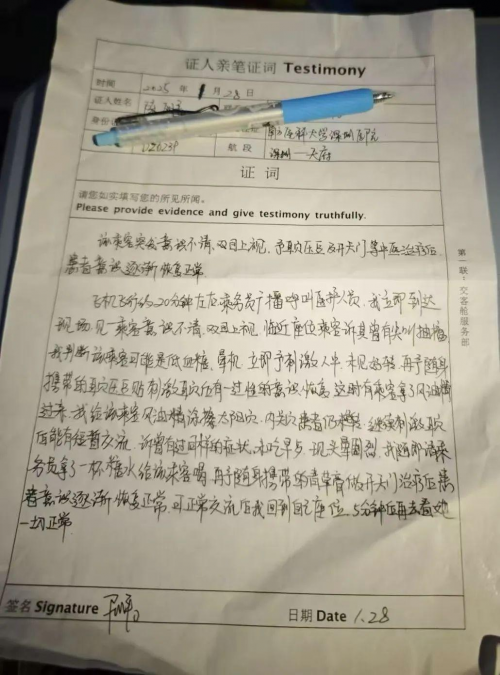 证人亲笔证词 Testimony
时间 2025 年 1 月 28 日
证人姓名
身份证
南方医科大学深圳医院
航段 深圳—天府
证 词
请您如实填写您的所见所闻。
Please provide evidence and give testimony truthfully.
该乘客突发意识不清,双目上视,予耳穴压豆及开天门等中医治疗后
患者意识逐渐恢复正常
飞机飞行约20分钟左右乘务员广播呼叫医护人员,我立即到达
现场,见一乘客意识不清,双目上视,临近座位乘客诉其曾有尖叫抽搐
我判断该乘客可能是低血糖,晕机,立即予刺激人中,未见好转,再予随身
携带的耳穴压豆贴刺激耳穴后有一过性的意识恢复,这时有乘客拿了风油精
过来,我给该乘客风油精涂擦太阳穴,内关穴,患者仍 继续刺激耳穴
后能有短暂交流,诉曾有过同样的症状,未吃早点,现头晕 我随即请乘
务员拿了一杯糖水给该乘客喝,再予随身携带的青草膏做开天门治疗后患
者意识逐渐恢复正常,可正常交流后我回到自己座位,5分钟后再去看 她
一切正常
第一联:交客舱服务部
签名 Signature
日期 Date 1.28